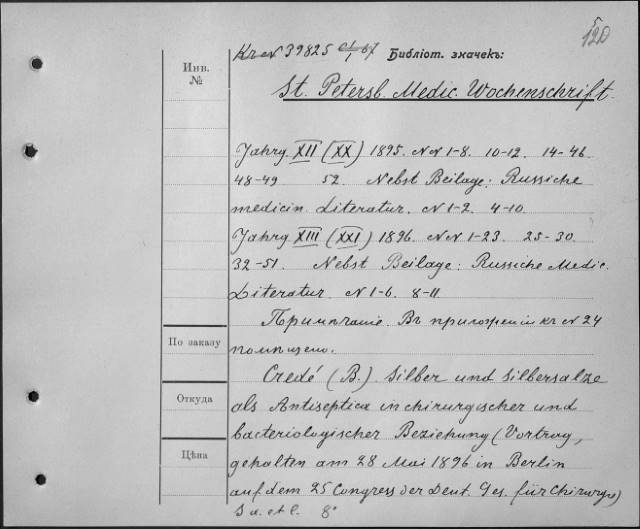 120
Kr N 39825 Библіот. значекъ:
Инв.
№
St. Petersb. Medic. Wochenschrift.
Jahrg. XII (XX) 1895. NN 1-8. 10-12. 14-46.
48-49 52. Nebst Beilage: Russiche
medicin. Literatur. N 1-2. 4-10.
Jahrg. XIII (XXI) 1896. NN 1-23. 25-30.
32-51. Nebst Beilage: Russiche Medic.
Literatur. N 1-6. 8-11.
Примѣчаніе. Въ приложеніи къ N 24
По заказу
помѣщено.
Credé (B.) Silber und Silbersalze
Откуда
als Antiseptica in chirurgischer und
bacteriologischer Beziehung (Vortrag,
Цѣна
gehalten am 28 Mai 1896 in Berlin
auf dem 25 Congress der Deut. Ges. für Chirurgie)
S a. et l. 8°